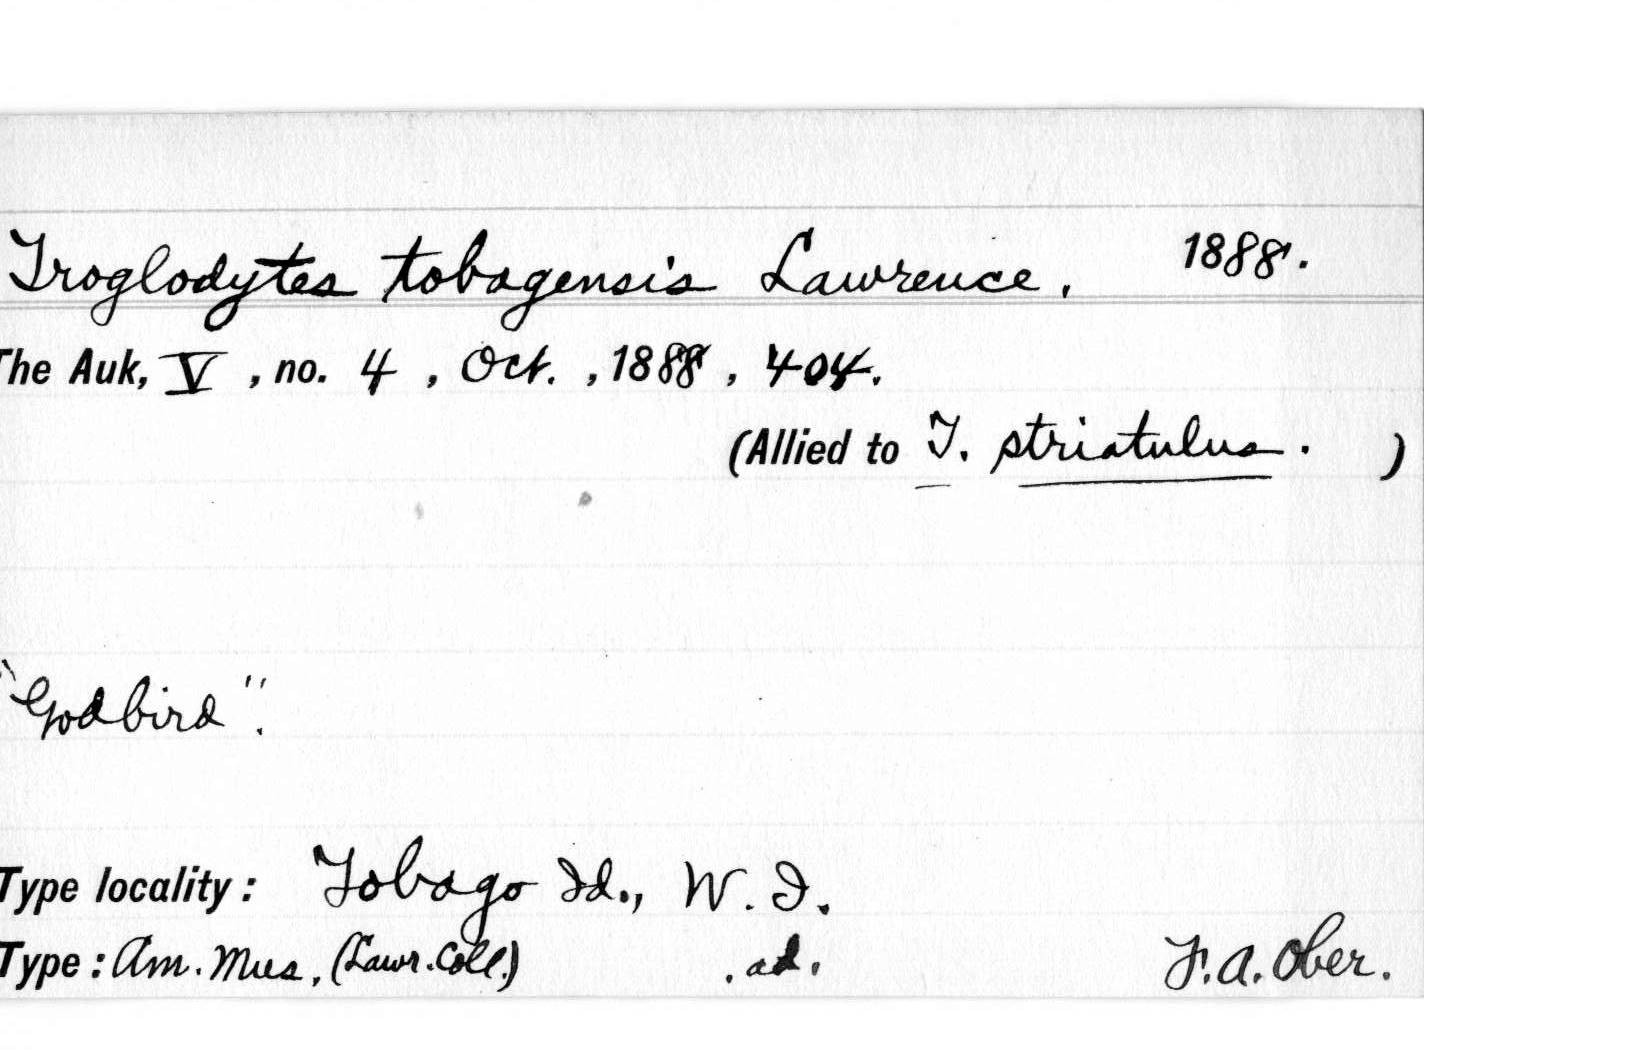 Troglodytes tobagensis Lawrence, 1888.
The Auk, V, no. 4, Oct., 1888, 404.
(Allied to T. striatulus. )
"Godbird".
Type locality: Tobago Id., W. I.
Type: Am. Mus. (Lawr. Coll.) . ad. F. A. Ober.